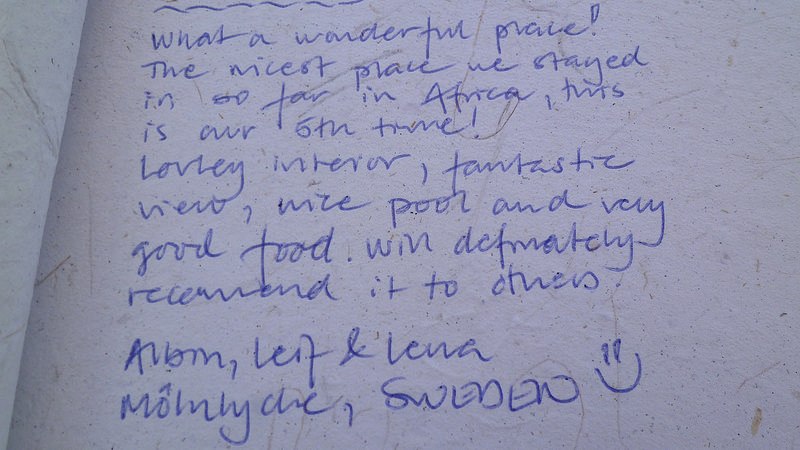 What a wonderful place!
The nicest place we stayed
in so far in Africa, this
is our 5th time!
Lovley interior, fantastic
view, nice pool and very
good food. Will definately
recomend it to others.
Albin, Leif & Lena
Mölnlycke, SWEDEN